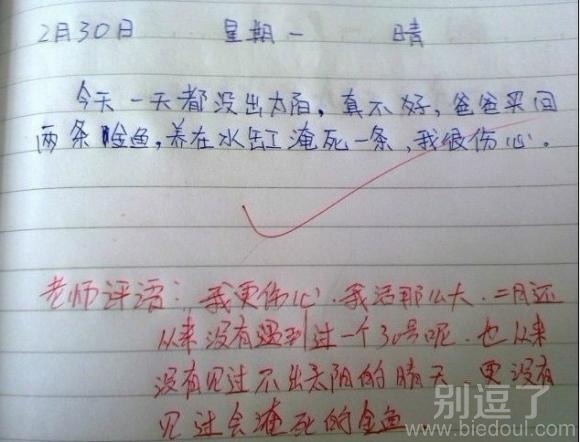 2月30日 星期一 晴
今天一天都没出太阳,真不好,爸爸买回
两条金鱼,养在水缸淹死一条,我很伤心。
老师评语:我更伤心.我活那么大.二月还
从来没有遇到过一个30号呢.也从来
没有见过不出太阳的晴天.更没有
见过会淹死的金鱼.
别逗了
www.biedoul.com